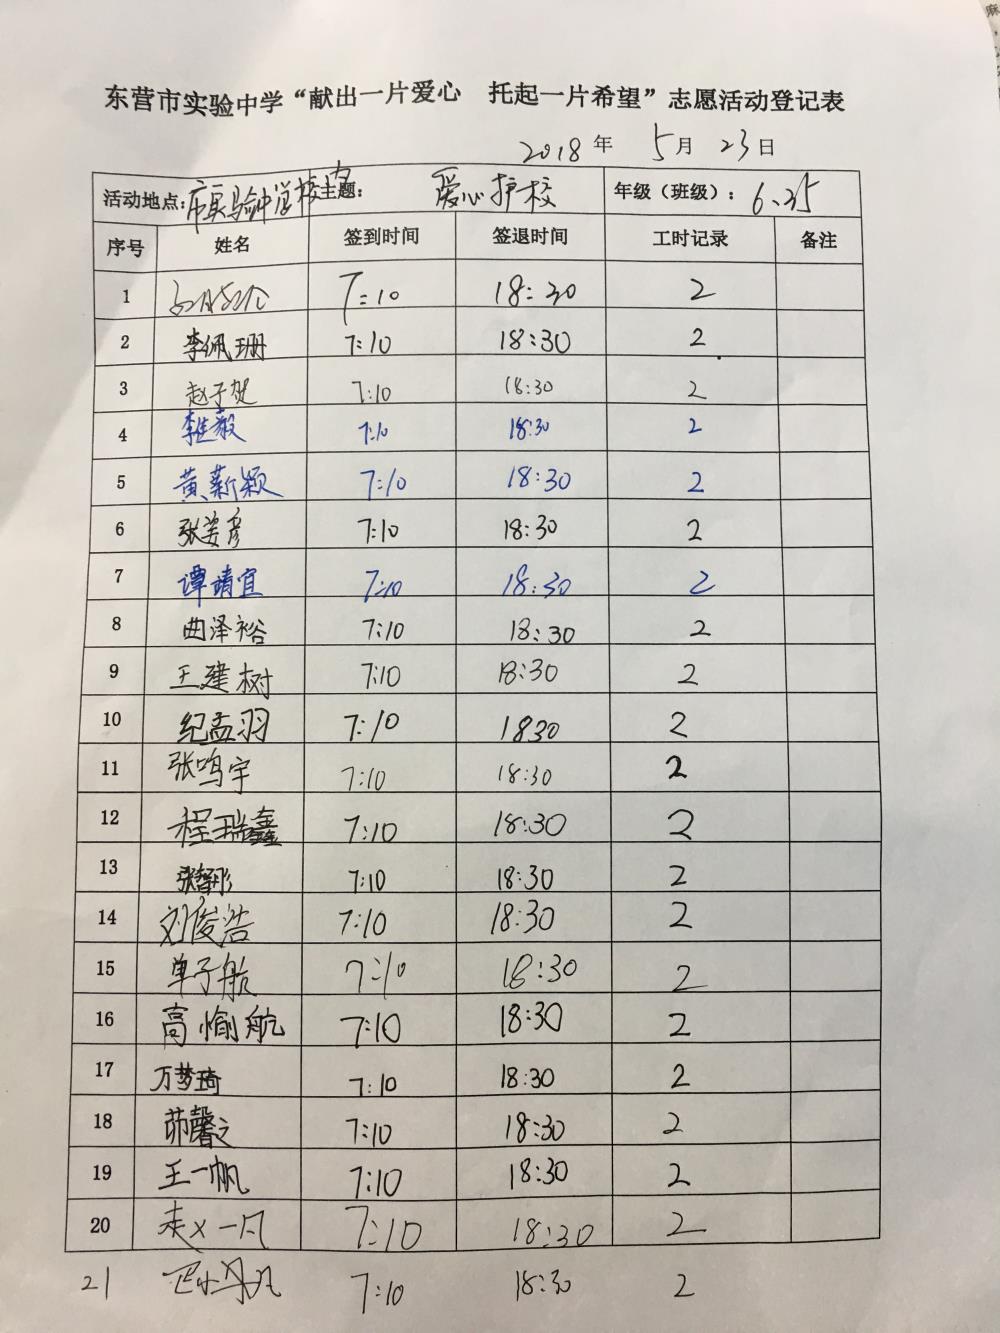 东营市实验中学“献出一片爱心 托起一片希望”志愿活动登记表
2018年 5月 23日
活动地点:市实验中学校内 主题: 爱心护校 年级（班级）: 6.35
序号 姓名 签到时间 签退时间 工时记录 备注
1 7:10 18:30 2
2 李佩珊 7:10 18:30 2
3 赵子贺 7:10 18:30 2
4 7:10 18:30 2
5 黄薪颖 7:10 18:30 2
6 张姜彦 7:10 18:30 2
7 谭靖宜 7:10 18:30 2
8 曲泽裕 7:10 18:30 2
9 王建树 7:10 18:30 2
10 纪孟羽 7:10 1830 2
11 张鸣宇 7:10 18:30 2
12 程瑞鑫 7:10 18:30 2
13 7:10 18:30 2
14 刘俊浩 7:10 18:30 2
15 单子航 7:10 18:30 2
16 高愉航 7:10 18:30 2
17 万梦琦 7:10 18:30 2
18 茆馨之 7:10 18:30 2
19 王一帆 7:10 18:30 2
20 7:10 18:30 2
21 7:10 18:30 2